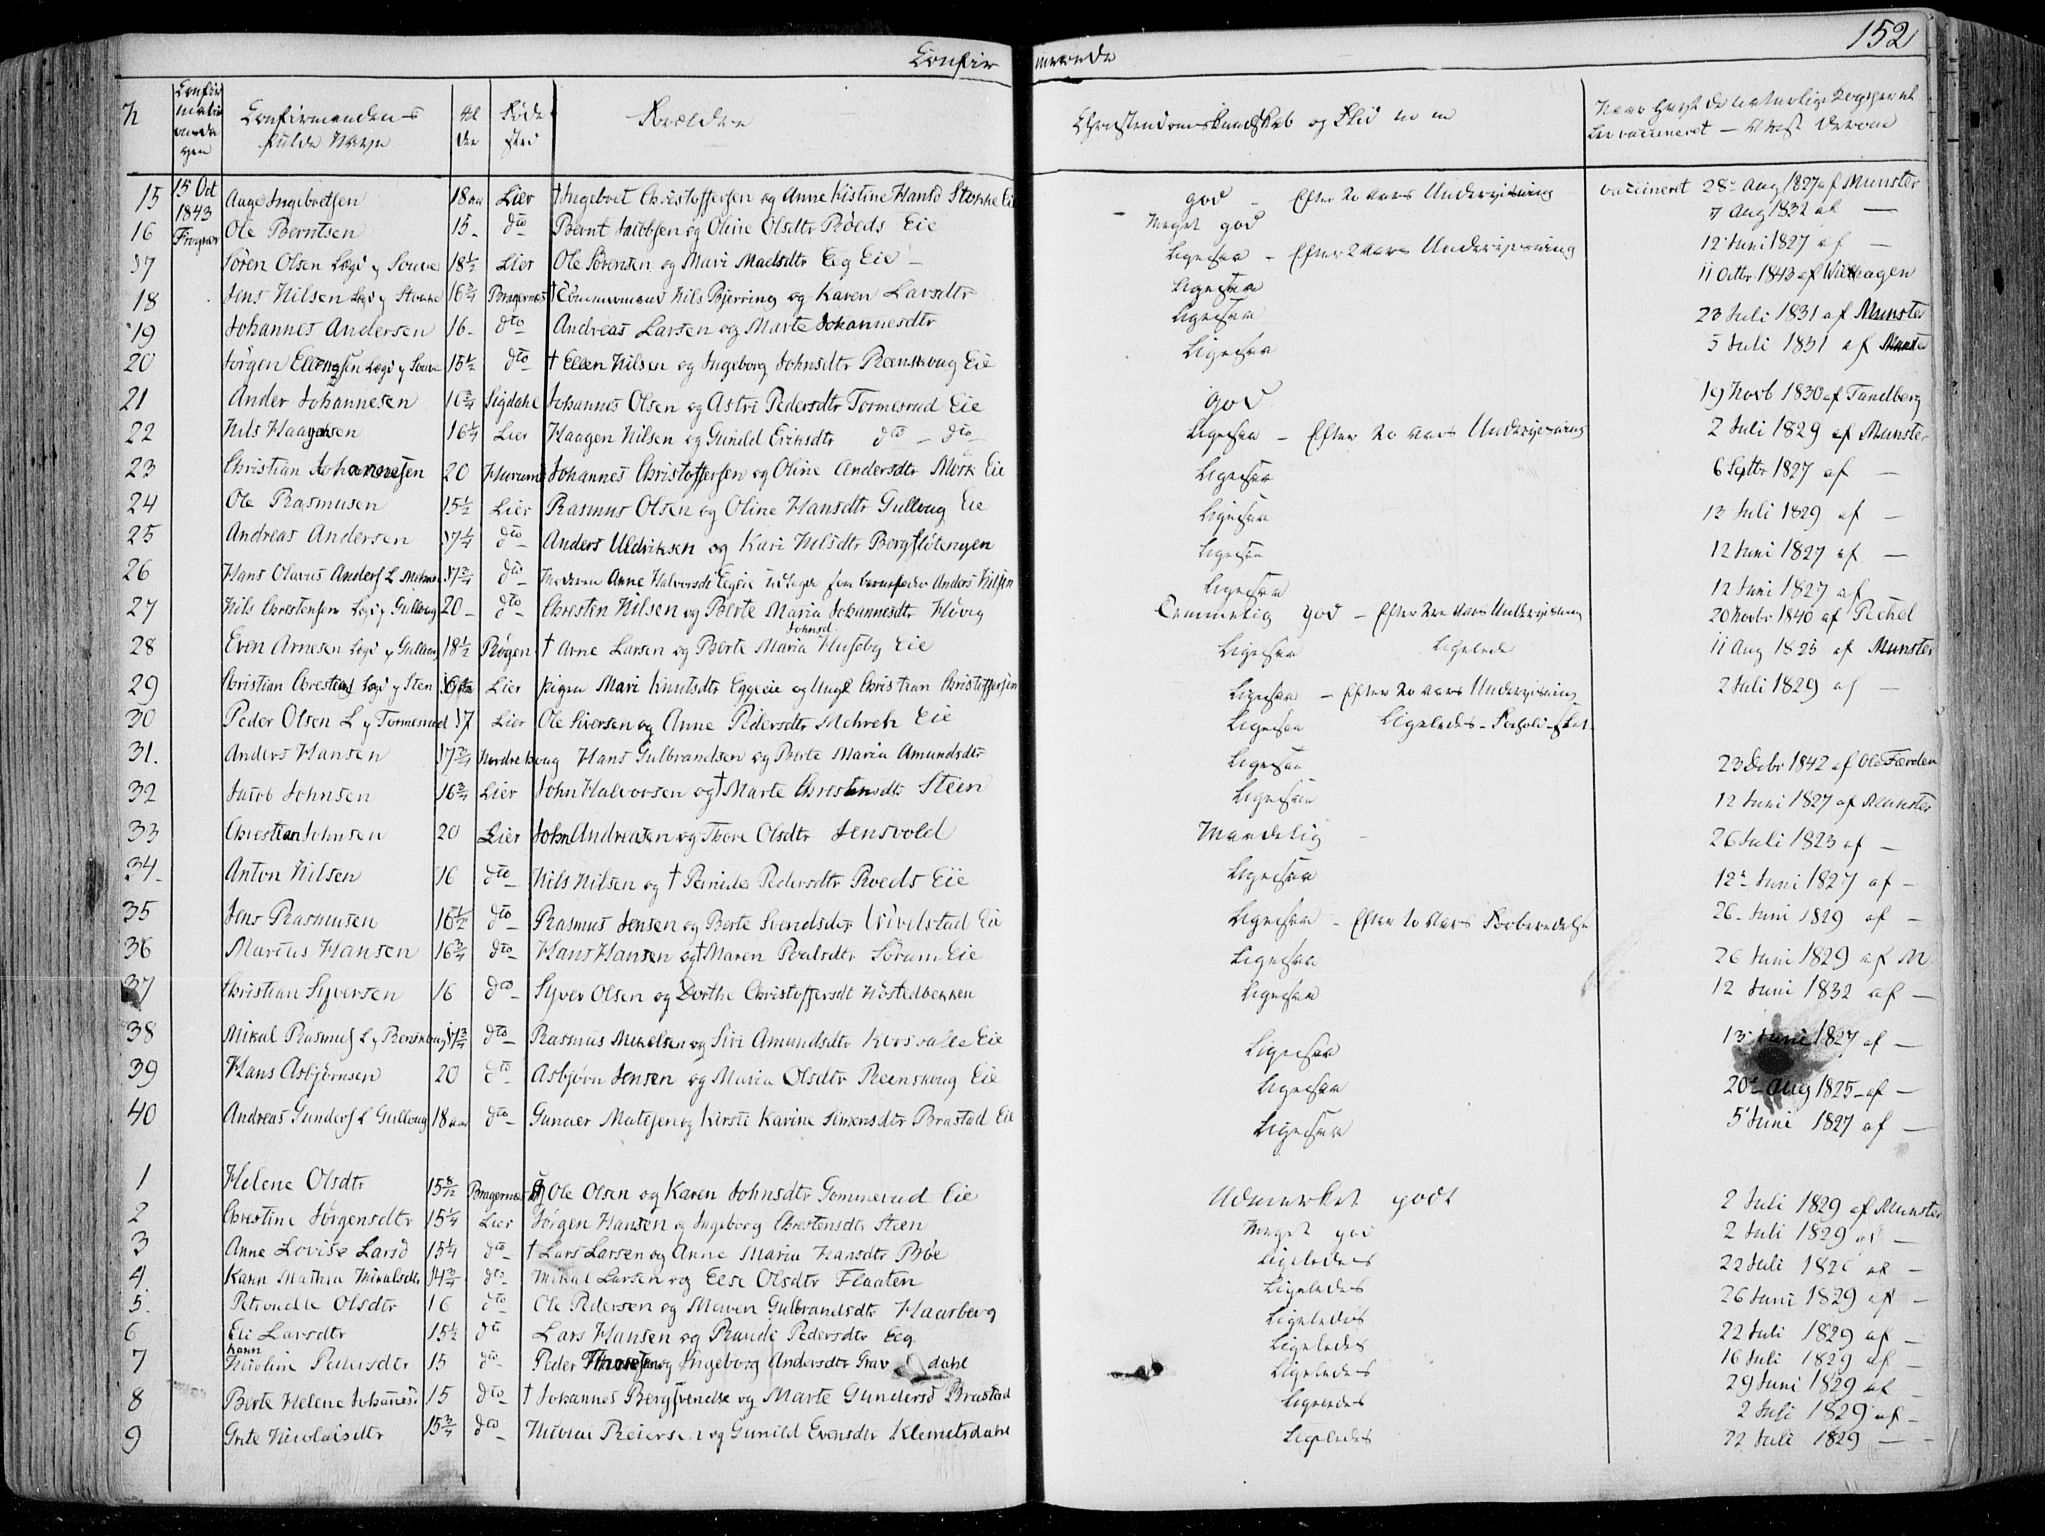 Confirmerede 152
N Confirmations dagen Confirmandens fulde Navn Alder Fødested Forældre Christendomskundskab og Flid Naar hvest de naturlige Kopper el. er vaccineret
15 15 Oct 1843 Frogner Auge Ingebretsen 18 Lier † Ingebret Christoffersen og Anne Kistine Hansd Stokke Eie god - Efter 20 vaccineret 28 Aug 1827 af Munster
16 Ole Berntsen 15 dto Bernt og Oline Olsdtr Röeds Eie Meget god 7 Aug 1832 af —
17 Sören Olsen 18½ Lier Ole Sörensen og Mari Madsdtr Eeg Eie Ligesaa - Efter 2 Aars Underviisning 12 Juni 1827 af —
18 Jens Nilsen 16¾ Bragernæs † Nils Bjerring og Karen Larsdtr Ligesaa 11 Octbr 1843 af
19 Johannes Andersen 16 dto Andreas Larsen og Marte Johannesdtr Ligesaa 23 Juli 1831 af Munster
20 Jörgen Ellengsen 15½ dto † Ellen Nilsen og Ingeborg Johnsdtr Reenskoug Eie Ligesaa 5 Juli 1831 af Munster
21 Ander Johannesen 16¾ Sigdahl Johannes Olsen og Astri Pedersdtr Tormesrud Eie god 19 Novb 1830 af Tandberg
22 Nils Haagensen 16¼ Lier Haagen Nilsen og Gunild Eriksdtr dto - dto Ligesaa - Efter Underviisning 2 Juli 1829 af Munster
23 Christian Johannesen 20 Hurum Johannes Christoffersen og Oline Andersdtr Mörk Eie Ligesaa 6 Septbr 1827 af —
24 Ole Rasmusen 15½ Lier Rasmus Olsen og Oline Hansdtr Gulloug Eie Ligesaa 13 Juli 1829 af —
25 Andreas Andersen 17¼ dto Anders Uldriksen og Kari Nilsdtr Bergflötengen Ligesaa 12 Juni 1827 af —
26 Hans Olavus Anders 17¾ dto Moderen Anne Halvorsdt Eegeie Anders Nilsen Ligesaa 12 Juni 1827 af
27 Nils Christensen Gulloug 20 dto Christen Nilsen og Berte Maria Johannesdtr Hövig Temmelig god - Efter Underviisning 20 Novbr 1840 af Pechel
28 Even Arnesen Gulloug 18½ Røgen † Arne Larsen og Berte Maria Johnsd Huseby Eie Ligesaa Ligelede 11 Aug 1825 af Munster
29 Christian Christians Sten Lier Pigen Mari Knutsdtr Eggeeie og Ungk Christian Christoffersen Ligesaa - Efter Underviisning 2 Juli 1829 af —
30 Peder Olsen L y Tormesrud 17 Lier Ole Siversen og Anne Pedersdtr Mehren Eie Ligesaa Ligeledes
31. Anders Hansen 17¾ Hans Gulbrandsen og Berte Maria Amundsdtr Ligesaa 23 Debr 1842 af Ole Færden
32 Jacob Johnsen 16¾ Lier John Halvorsen og † Marte Christensdtr Steen Ligesaa 12 Juni 1827 af Munster
33 Christian Johnsen 20 Lier John Andreasen og Thore Olsdtr Jensvold Maadelig 26 Juli 1823 af —
34 Anton Nilsen 16 dto Nils Nilsen og † Pedersdtr Roeds Eie Ligesaa 12 Juni 1827 af —
35 Jens Rasmusen 16½ dto Rasmus Jensen og Berte Svendsdtr Eie Ligesaa - Efter 26 Juni 1829 af —
36 Marcus Hansen 16¾ dto Hans Hansen og † Maren Poulsdtr Sörum Eie Ligesaa 26 Juni 1829 af M
37 Christian Syversen 16 dto Syver Olsen og Dorthe Christoffersdt Ligesaa 12 Juni 1832 af —
38 Mikal Rasmus L y Renskoug 17¾ dto Rasmus Mikelsen og Siri Amundsdtr Eie Ligesaa 13 Juni 1827 af —
39 Hans Asbjörnsen 20 dto Asbjörn Jensen og Maria Olsdtr Reenskoug Eie Ligesaa 20 Aug 1825 af —
40 Andreas Gunders L Gulloug 18 dto Gunder Matisen og Kirsti Karine Simensdtr Brastad Eie Ligesaa 5 Juni 1827 af —
1 Helene Olsdtr 15 Bragernæs Ole Olsen og Karen Johnsdtr Gommerud Eie Udmærket godt 2 Juli 1829 af Munster
2 Christine Jörgensdtr 15¼ Lier Jörgen Hansen og Ingeborg Christensdtr Steen Meget god 2 Juli 1829 af —
3 Anne Lovise Larsd 15¼ dto † Lars Larsen og Anne Maria Hansdtr Böe Ligeledes 22 Juli af —
4 Karen Mathea Mikalsdtr 14¾ dto Mikal Larsen og Else Olsdtr Flaaten Ligeledes 26 Juni 1829 af —
5. Petronelle Olsdtr 16 dto Ole Pedersen og Maren Gulbrandsdtr Haarberg Ligeledes 22 Juli 1829 af —
6 Eli Larsdtr 15½ dto Lars Hansen og Randi Pedersdtr Eeg Ligeledes 16 Juli 1829 af —
7 Karen Nicoline Pedersdtr 15 dto Peder Thoresen og Ingeborg Andersdtr Gravdahl Ligeledes 29 Juni 1829 af —
8 Berte Helene Johannesd 15 dto † Johannes Bergsvendsen og Marte Gundersd Brastad Ligeledes 2 Juli 1829 af —
9 Grete Nicolaisdtr 15¾ dto Nicolai Reiersen og Gunild Evensdtr Klemetsdahl Ligeledes 22 Juli 1829 —